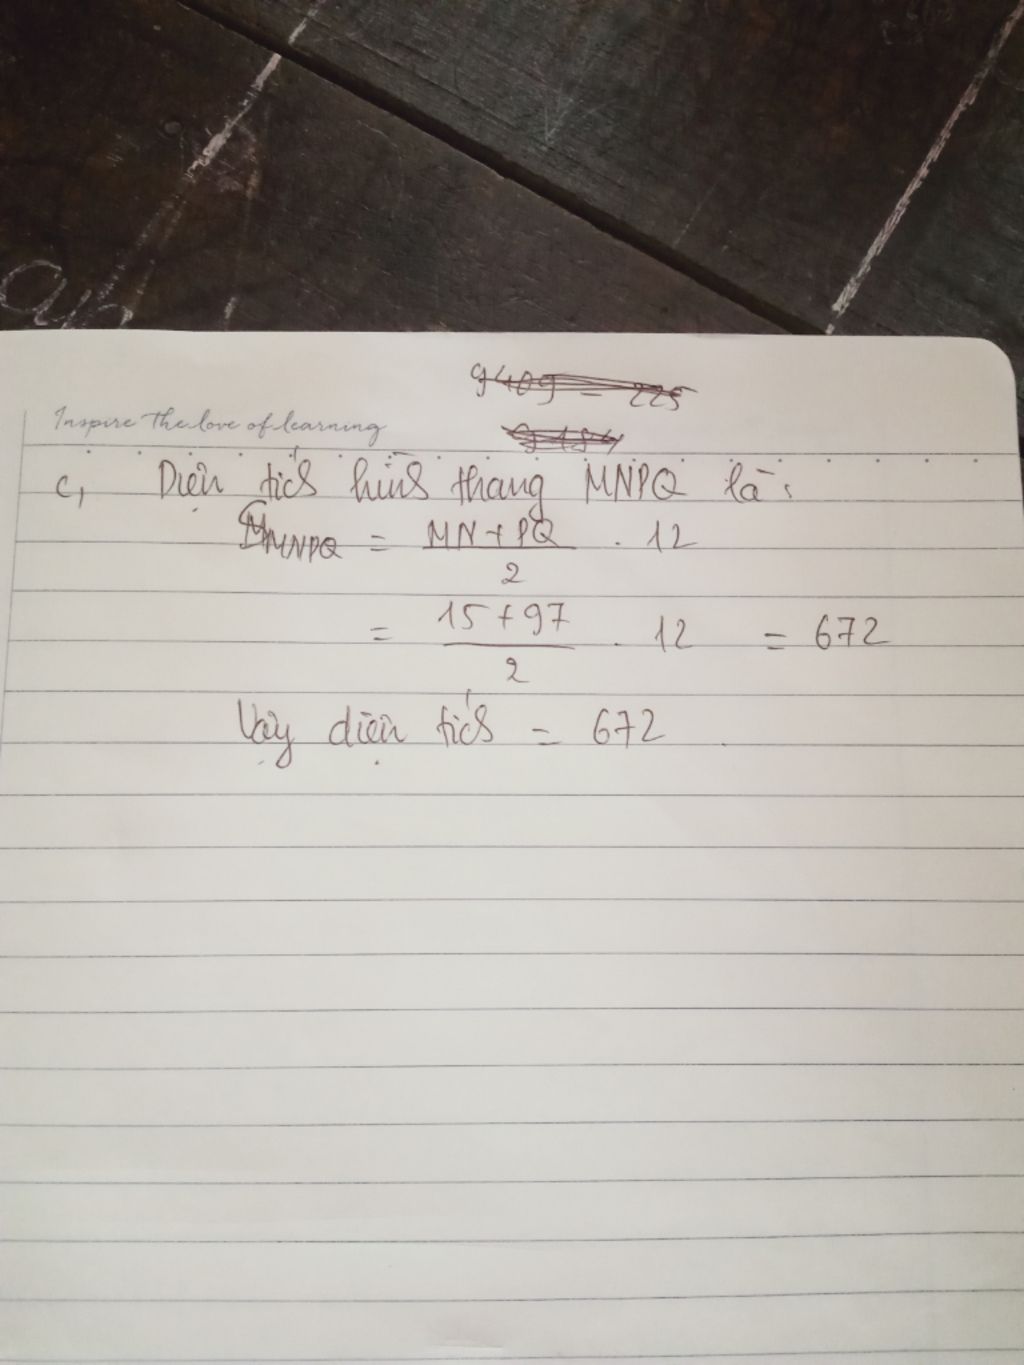 9409 - 225
Inspire the love of learning
9184
c, Diện tích hình thang MNPQ là:
S MNPQ = MN + PQ / 2 . 12
= 15 + 97 / 2 . 12 = 672
Vậy diện tích = 672